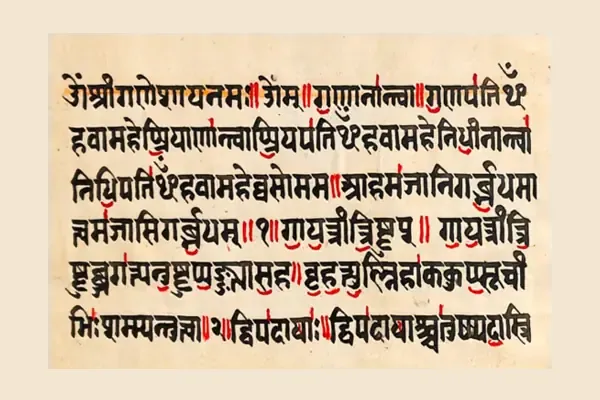 ॐश्रीगणेशायनमः॥ओम्॥ग॒णाना॑न्त्वा॥ग॒णप॑तिᳬ
हवामहेप्प्रि॒याणा॑न्त्वाप्प्रि॒यप॑तिᳬहवामहेनिधी॒नान्त्वा॑
निधि॒पति॑ᳬहवामहेव्वसोमम॥आहम॑जानिगर्ब्भ॒धमा
त्वम॑जासिगर्ब्भ॒धम्॥१॥गा॒य॒त्त्रीत्त्रि॒ष्टुप्॥गा॒य॒त्त्रीत्त्रि॒
ष्टुब्जग॑त्यनु॒ष्टुप्प॒ङ्क्त्यास॒ह॥बृ॒ह॒त्त्यु॒ष्ण्णिहा॑क॒कुप्प्सू॒ची
भिः॑शम्म्यन्तुत्त्वा॥२॥द्विप॑दा॒याः॥द्विप॑दा॒याश्च्चतु॑ष्प्पदा॒स्त्रि